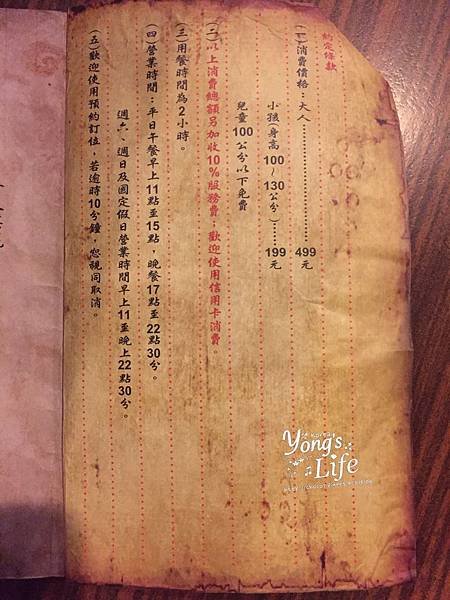 約定條款
(一)消費價格：大人..................499元
小孩(身高100~130公分)......199元
兒童100公分以下免費
(二)以上消費總額另加收10%服務費；歡迎使用信用卡消費。
(三)用餐時間為2小時。
(四)營業時間：平日午餐早上11點至15點 晚餐17點至22點30分。
週六、週日及國定假日營業時間早上11至晚上22點30分。
(五)歡迎使用預約訂位，若逾時10分鐘，恕視同取消。
Yong's
Life